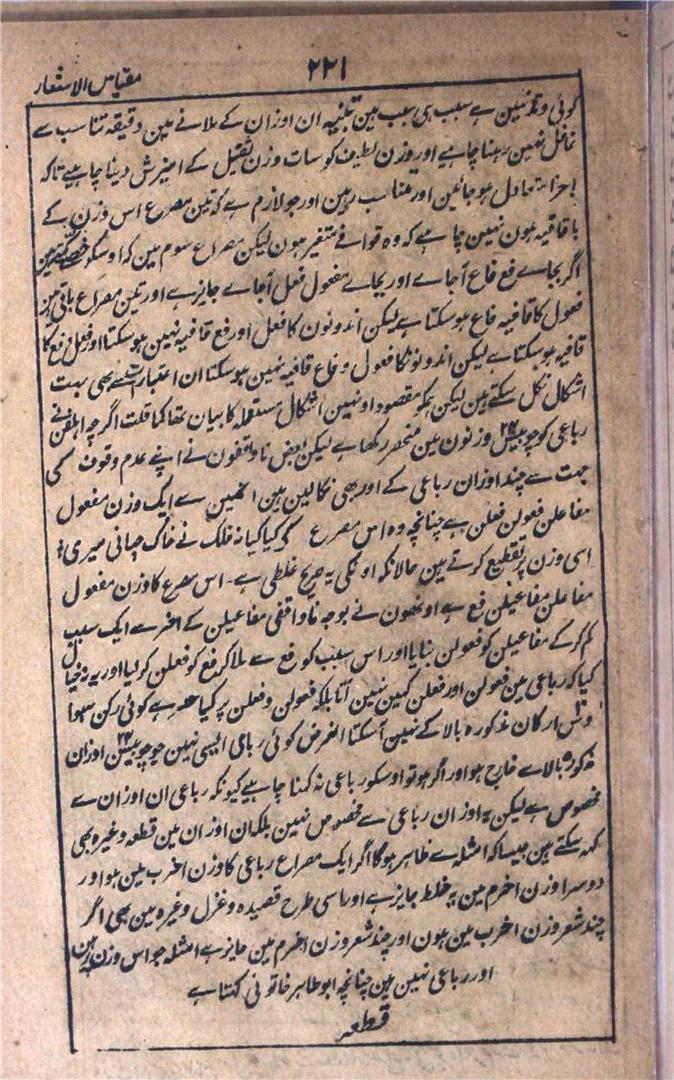 ۲۲۱
مقیاس الاشعار
کوئی وتد نہین ہے سبب ہی سبب ہین تنبیہ ان اوزان کے ملانے مین دقیقہ تناسب سے
غافل نہین رہنا چاہیے اور وزن لطیف کو سات وزن ثقیل کے امیزش دینا چاہیے تاکہ
اجزا متعادل ہو جائین اور مناسب رہین اور جو لازم ہے کہ تین مصرع اس وزن کے
با قافیہ ہون نہین چاہے کہ وہ قوافے متغیر ہون لیکن مصراع سوم مین کہ اوسکو خصے کہتے ہین
اگر بجاے رفع فاع آجاے اور بجاے مفعول فعل آجاے جایز ہے اور تین مصراع باقی مین
فعول کا قافیہ فاع ہو سکتا ہے لیکن اندونون کا فعل اور رفع قافیہ نہین ہو سکتا اور فعل رفع کا
قافیہ ہو سکتا ہے لیکن اندونونکا فعول و فاع قافیہ نہین ہو سکتا ان اعتبارات سے بھی بہت
اشکال نکل سکتے ہین لیکن ہمکو مقصود او نہین اشکال مستعملہ کا بیان تھا کما قلت اگرچہ اہل فن نے
رباعی کو چوبیس ۲۴ وزنون مین منحصر رکھا ہے لیکن بعض ناواقفون نے اپنے عدم وقوف کی
جہت سے چند اوزان رباعی کے اور بھی نکالین ہین انھین سے ایک وزن مفعول
مفاعلن فعولن فعلن ہے چنانچہ وہ اس مصرع کو کیا کیا نہ فلک نے خاک چھانی میری
اسی وزن پر تقطیع کرتے ہین حالانکہ اونکی یہ صریح غلطی ہے۔ اس مصرع کا وزن مفعول
مفاعلن مفاعیلن فع ہے اونھون نے بوجہ ناواقفی مفاعیلن کے اخر سے ایک سبب
کم کرکے مفاعیلن کو فعولن بنایا اور اس سبب کو رفع سے ملا کر رفع کو فعلن کر لیا اور یہ نہ خیال
کیا کہ رباعی مین فعولن اور فعلن کہین نہین آتا بلکہ فعولن و فعلن پر کیا حصہ ہے کوئی رکن سوا
دس ارکان مذکورہ بالا کے نہین آسکتا الغرض کوئی رباعی ایسی نہین جو چوبیس ۲۴ اوزان
مذکورہ بالا سے خارج ہو اور اگر ہو تو اوسکو رباعی نہ کہنا چاہیے کیونکہ رباعی ان اوزان سے
مخصوص ہے لیکن یہ اوزان رباعی سے مخصوص نہین بلکہ ان اوزان مین قطعہ وغیرہ بھی
کہہ سکتے ہین جیسا کہ امثلہ سے ظاہر ہوگا اگر ایک مصراع رباعی کا وزن اخرب مین ہو اور
دوسرا وزن اخرم مین یہ خلط جایز ہے اور اسی طرح قصیدہ و غزل وغیرہ مین بھی اگر
چند شعر وزن اخرب مین ہون اور چند شعر وزن اخرم مین جایز ہے امثلہ جو اس وزن پر ہین
اور رباعی نہین ہین چنانچہ ابوطاہر خاتونی کہتا ہے
قطعہ